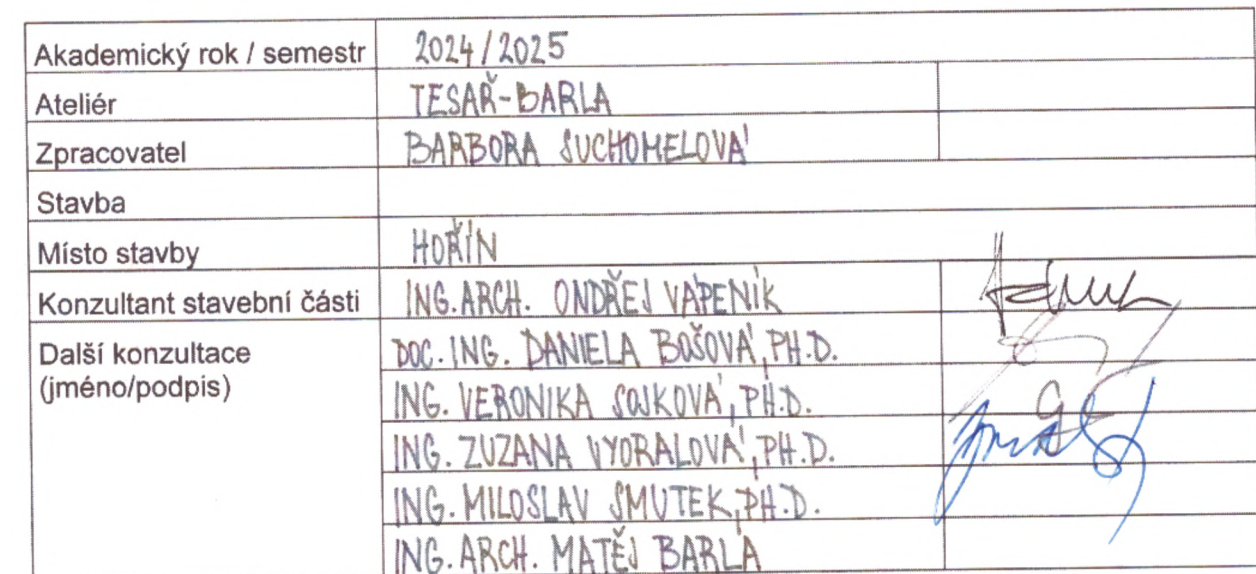 Akademický rok / semestr 2024/2025
Ateliér TESAŘ-BARLA
Zpracovatel BARBORA SUCHOMELOVÁ
Stavba
Místo stavby HOŘÍN
Konzultant stavební části ING. ARCH. ONDŘEJ VÁPENÍK
Další konzultace DOC. ING. DANIELA BOŠOVÁ, PH.D.
(jméno/podpis) ING. VERONIKA SOJKOVÁ, PH.D.
ING. ZUZANA VYORALOVÁ, PH.D.
ING. MILOSLAV SMUTEK, PH.D.
ING. ARCH. MATĚJ BARLA